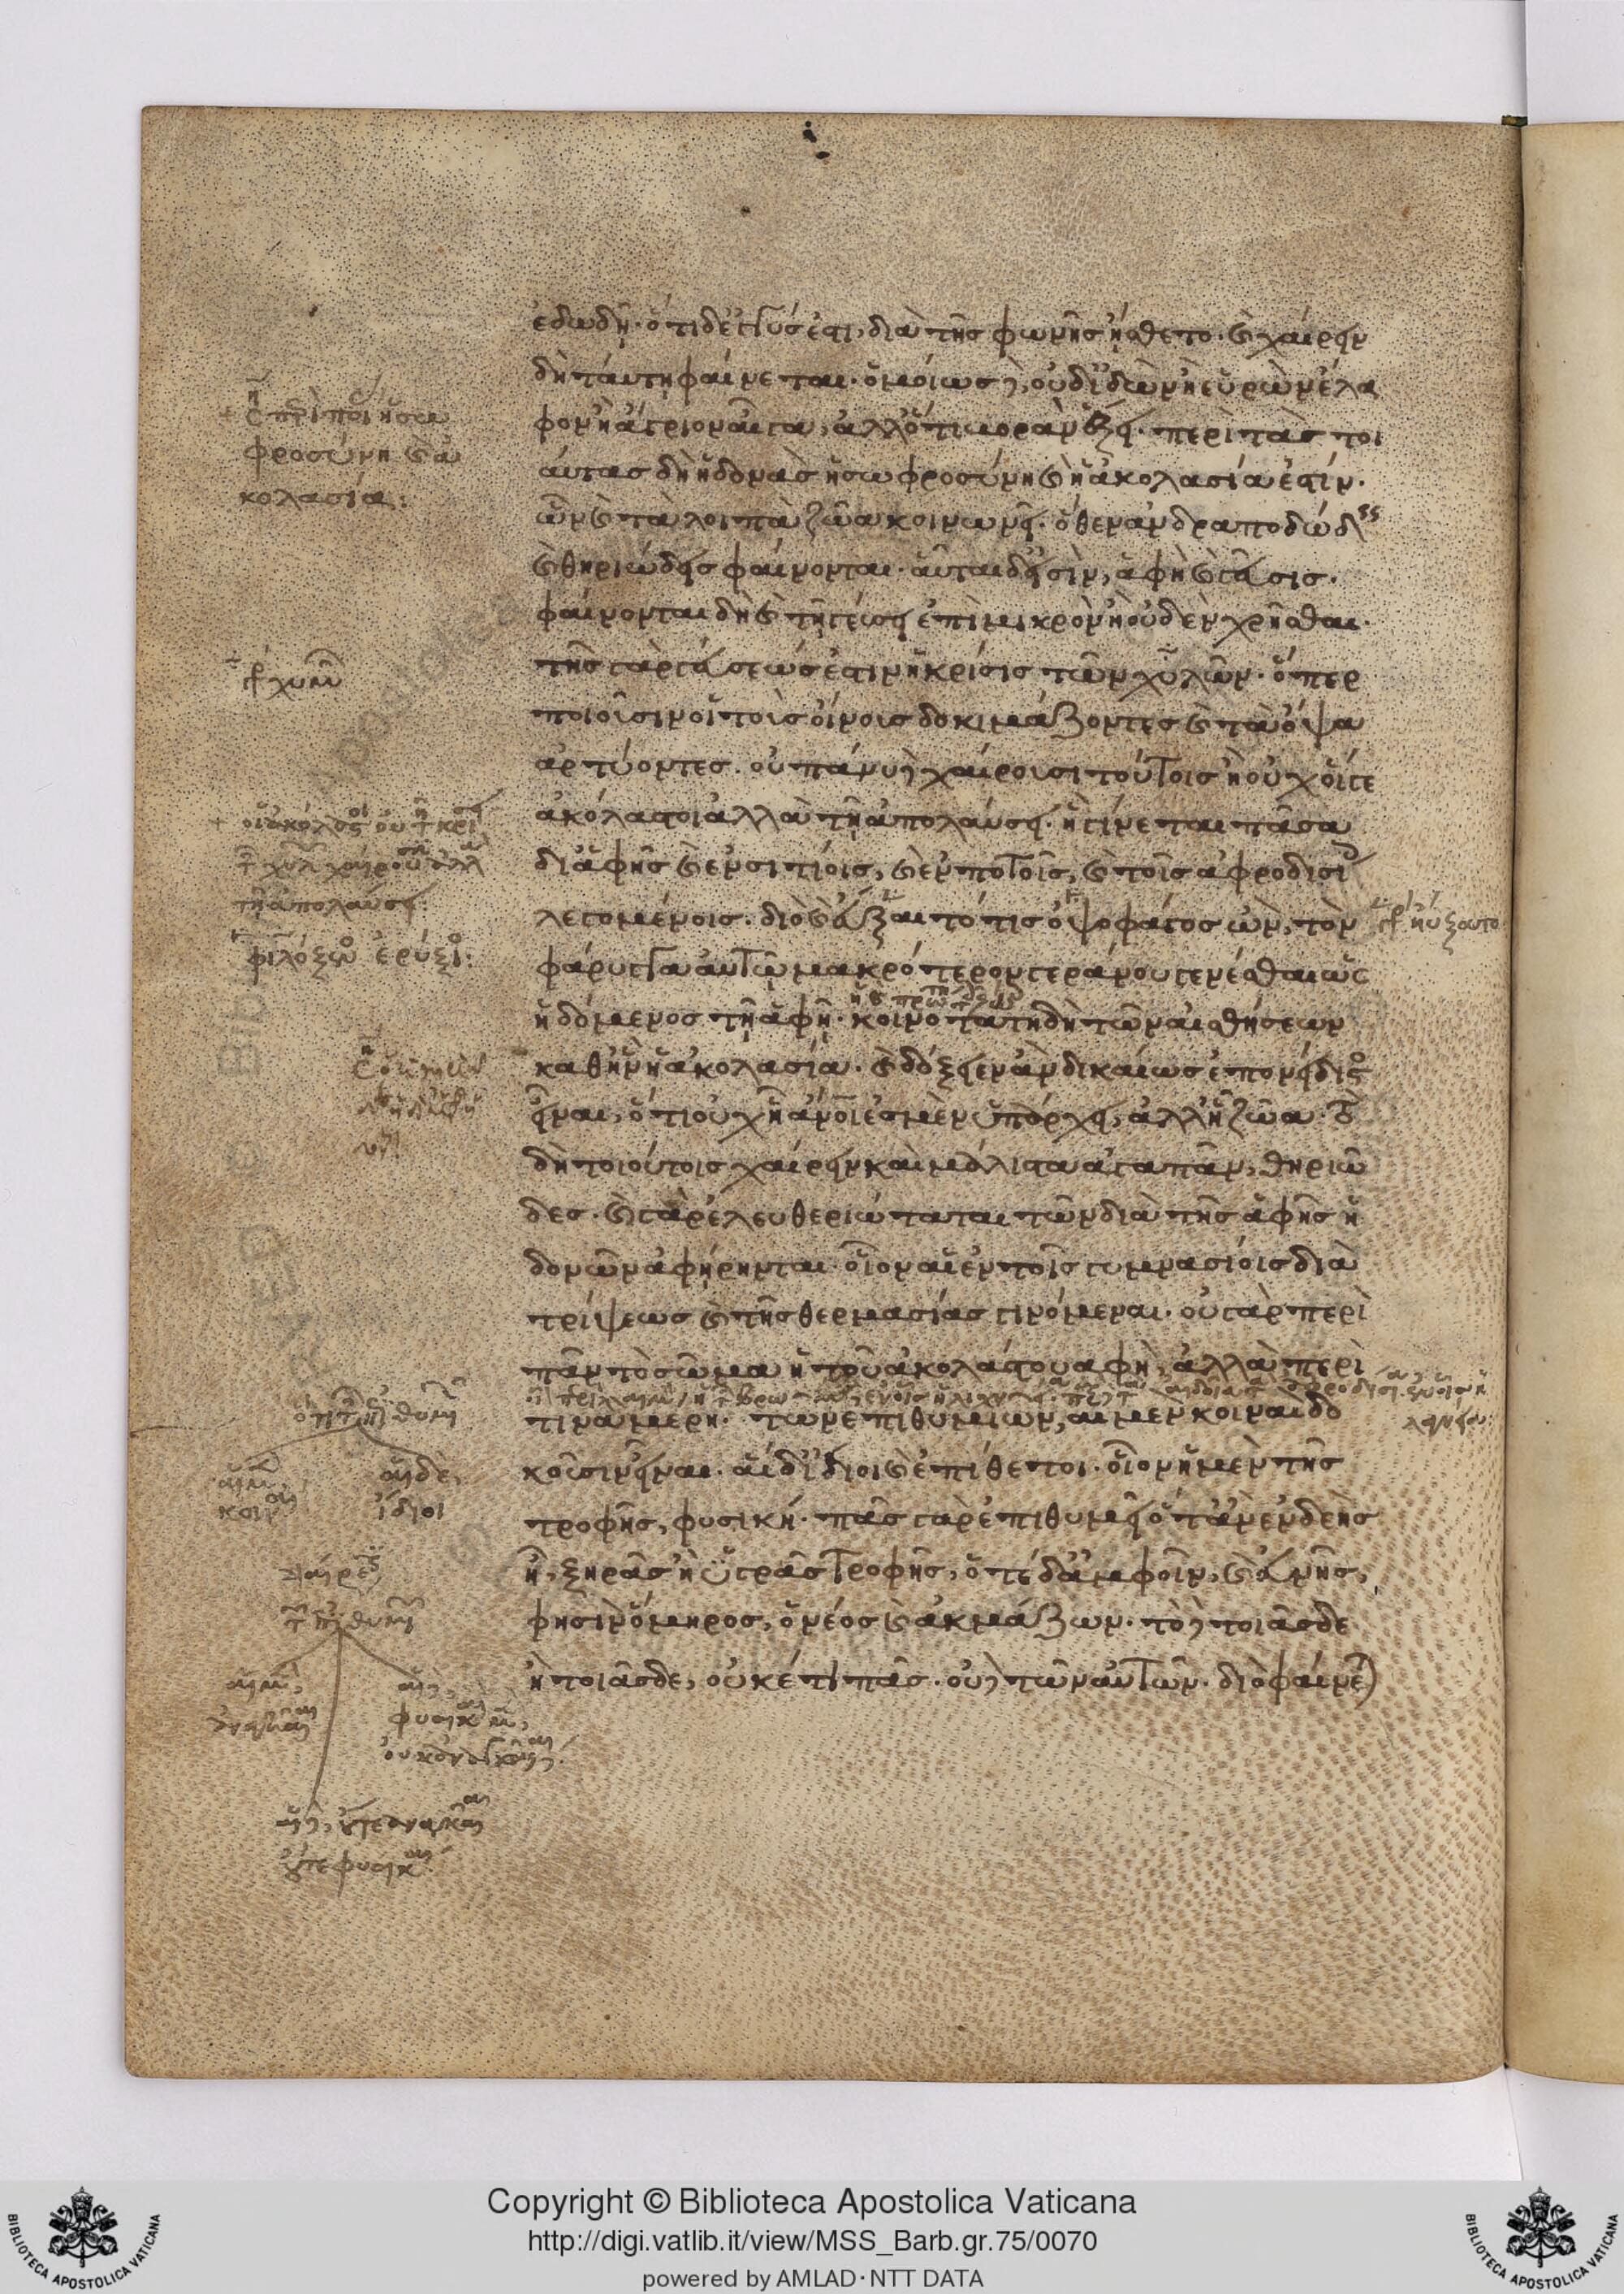 ἐδωδῇ· ὅτι δ' ἐγγύς ἐστι, διὰ τῆς φωνῆς ᾔσθετο· καὶ χαίρειν
δὴ ταύτῃ φαίνεται· ὁμοίως δ', οὐδ' ἰδὼν ἢ εὑρὼν ἔλα
φον ἢ ἄγριον αἶγα, ἀλλ' ὅτι βορὰν ἕξει· περὶ τὰς τοι
αύτας δὴ ἡδονὰς ἡ σωφροσύνη καὶ ἡ ἀκολασία ἐστίν·
ὧν καὶ τὰ λοιπὰ ζῶα κοινωνεῖ· ὅθεν ἀνδραποδώδεις
καὶ θηριώδεις φαίνονται· αὗται δ' εἰσὶν, ἁφὴ καὶ γεῦσις·
φαίνονται δὴ καὶ τῇ γεύσει ἐπὶ μικρὸν ἢ οὐδὲν χρῆσθαι·
τῆς γὰρ γεύσεώς ἐστιν ἡ κρίσις τῶν χυλῶν· ὅπερ
ποιοῦσιν οἱ τοὺς οἴνους δοκιμάζοντες καὶ τὰ ὄψα
ἀρτύοντες· οὐ πάνυ δὲ χαίρουσι τούτοις ἢ οὐχ οἵ γε
ἀκόλαστοι ἀλλὰ τῇ ἀπολαύσει· ἣ γίνεται πᾶσα
δι' ἁφῆς καὶ ἐν σιτίοις, καὶ ἐν ποτοῖς, καὶ τοῖς ἀφροδισίοις
λεγομένοις· διὸ καὶ εὔξατό τις ὀψοφάγος ὢν, τὸν
φάρυγγα αὐτῷ μακρότερον γεράνου γενέσθαι ὡς
ἡδόμενος τῇ ἁφῇ· κοινοτάτη δὴ τῶν αἰσθήσεων
καθ' ἣν ἡ ἀκολασία· καὶ δόξειεν ἂν δικαίως ἐπονείδιστος
εἶναι, ὅτι οὐχ ᾗ ἄνοι ἐσμὲν ὑπάρχει, ἀλλ' ᾗ ζῶα· τὸ
δὴ τοιούτοις χαίρειν καὶ μάλιστα ἀγαπᾶν, θηριῶ
δες· καὶ γὰρ ἐλευθεριώταται τῶν διὰ τῆς ἁφῆς ἡ
δονῶν ἀφῄρηνται· οἷον αἱ ἐν τοῖς γυμνασίοις διὰ
τρίψεως καὶ τῆς θερμασίας γινόμεναι· οὐ γὰρ περὶ
πᾶν τὸ σῶμα ἡ τοῦ ἀκολάστου ἁφὴ, ἀλλὰ περὶ
τινα μέρη· τῶν ἐπιθυμιῶν, αἱ μὲν κοιναὶ δο
κοῦσιν εἶναι· αἱ δ' ἴδιοι καὶ ἐπίθετοι· οἷον ἡ μὲν τῆς
τροφῆς, φυσική· πᾶς γὰρ ἐπιθυμεῖ ὅταν ἐνδεὴς
ᾖ, ξηρᾶς ἢ ὑγρᾶς τροφῆς, ὁτὲ δ' ἀμφοῖν, καὶ εὐνῆς,
φησὶν ὅμηρος, ὁ νέος καὶ ἀκμάζων· τὸ δὲ τοιᾶσδε
ἢ τοιᾶσδε, οὐκέτι πᾶς· οὐδὲ τῶν αὐτῶν· διὸ φαίνεται
φροσύνη καὶ ἀ
κολασία:
τῇ ἀπολαύσει:
ηὔξατο
αἱ δὲ,
ἴδιοι
Copyright © Biblioteca Apostolica Vaticana
http://digi.vatlib.it/view/MSS_Barb.gr.75/0070
powered by AMLAD·NTT DATA
BIBLIOTECA APOSTOLICA VATICANA
BIBLIOTECA APOSTOLICA VATICANA